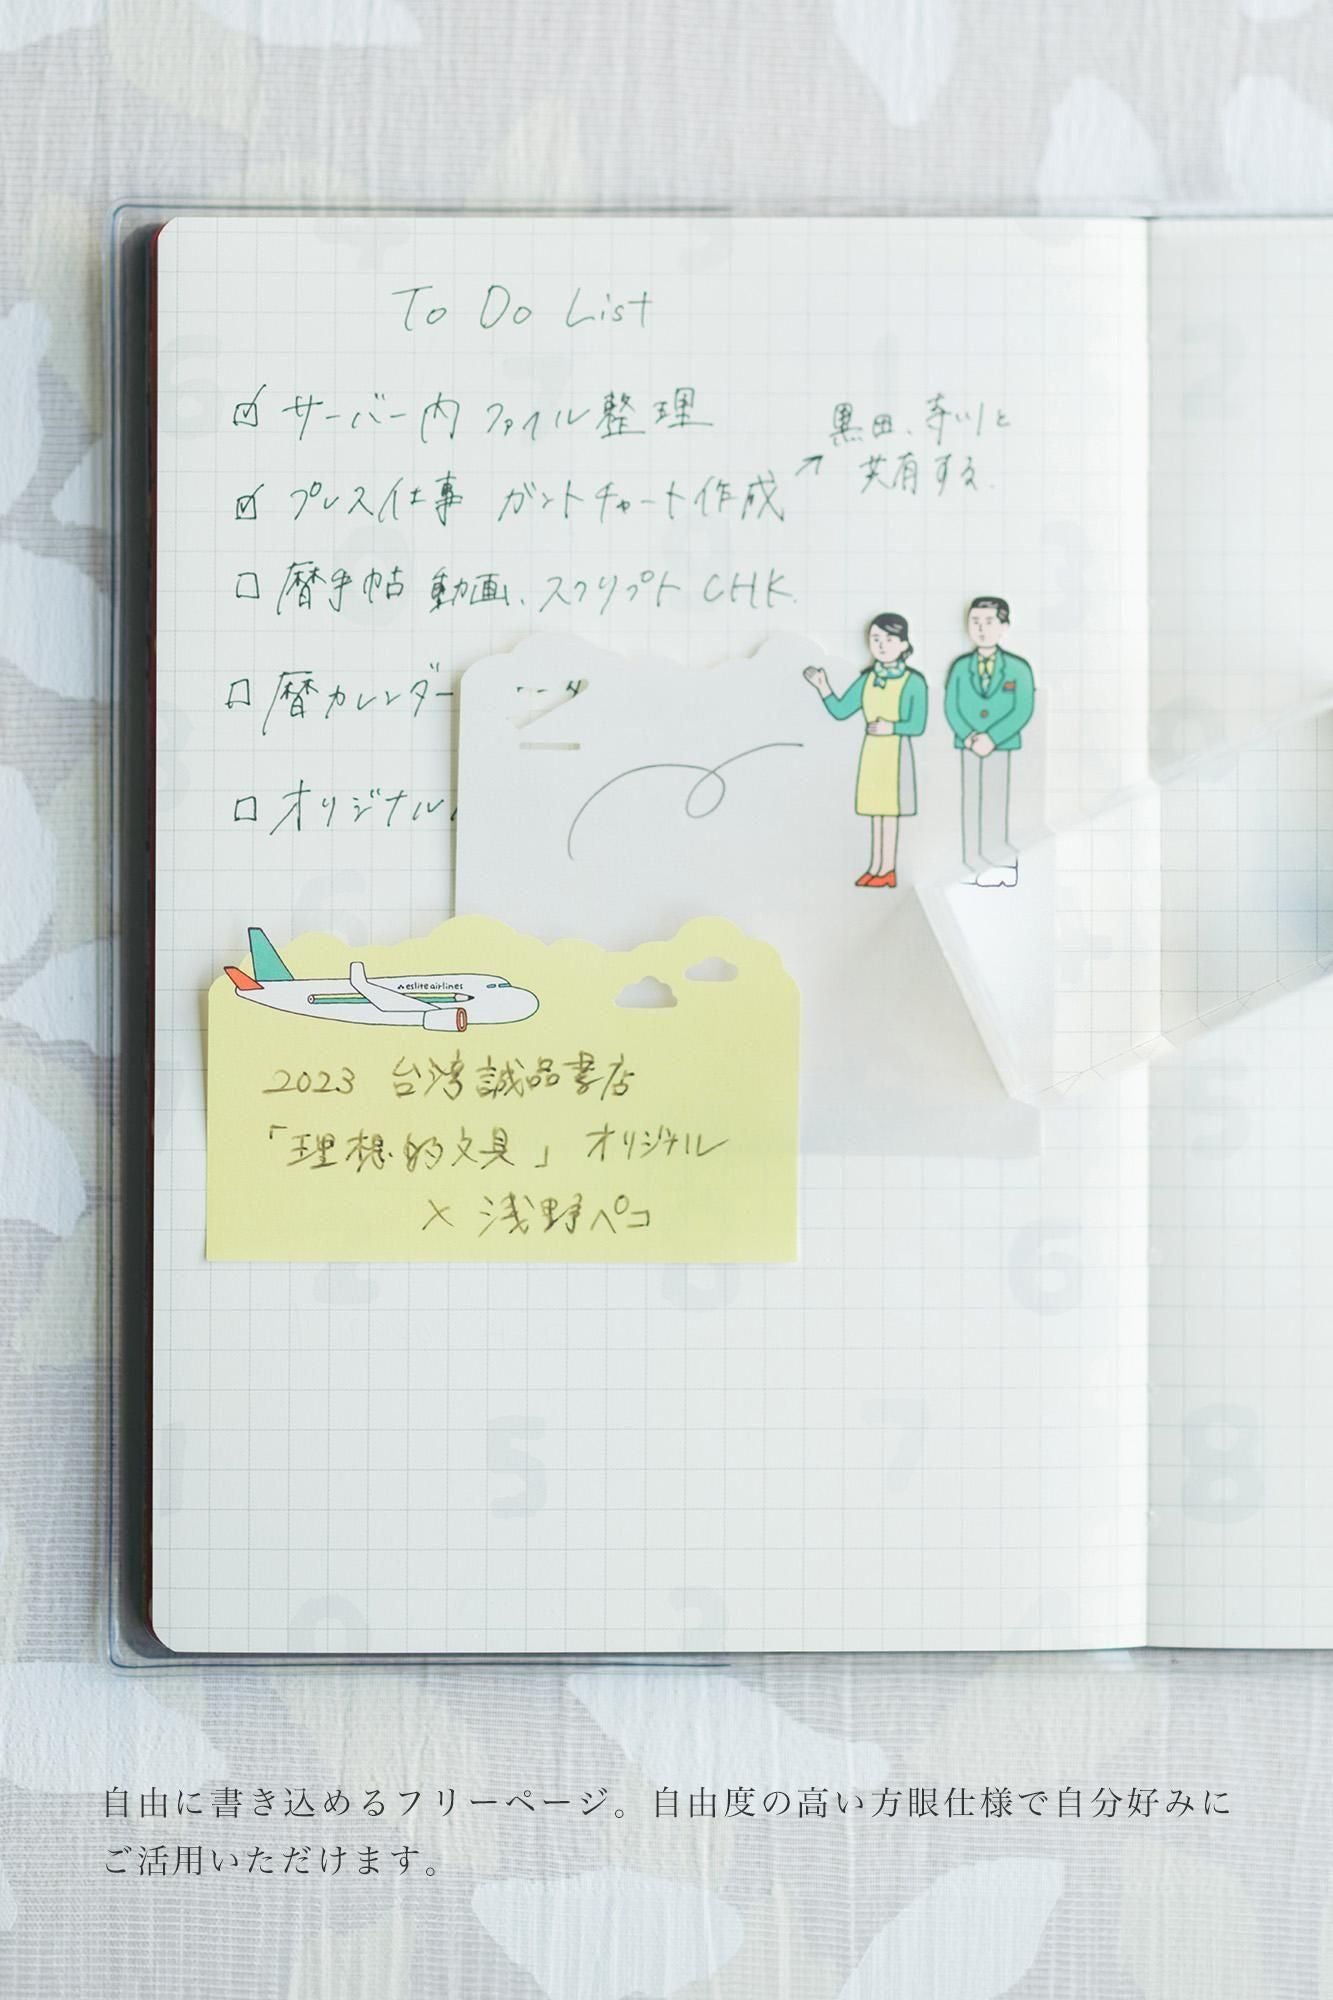 To Do List
サーバー内 ファイル整理
黒田、寺川と
共有する.
プレス仕事 ガントチャート作成
暦手帖 動画、スクリプト CHK.
暦カレンダー
オリジナル
eslite airlines
2023 台湾誠品書店
「理想的文具」 オリジナル
× 浅野ペコ
自由に書き込めるフリーページ。自由度の高い方眼仕様で自分好みに
ご活用いただけます。